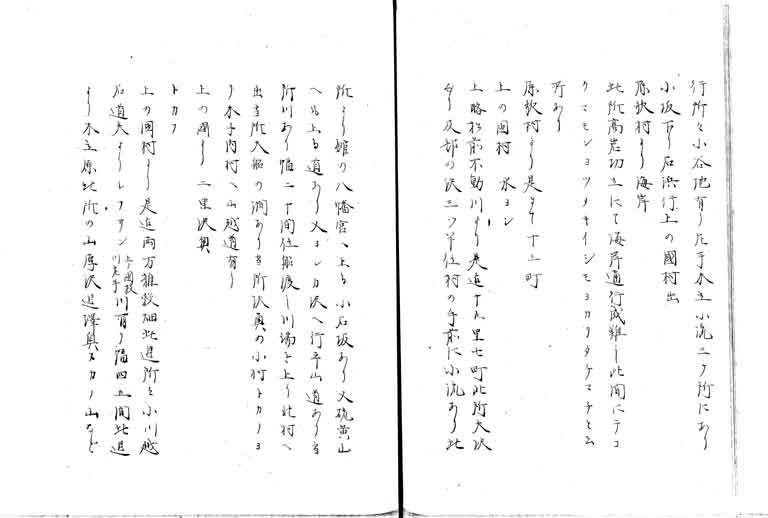 行所々小谷地有り左手木立小流二ケ所にあり
小坂下り石浜行上の國村出
原歌村より海岸
此所高岩切立にて海岸通行成難し此間にテコ
クマモシヨツメキイシモヨカリタケマチと云
所あり
原歌村より是まて十三町
上の国村 水ヨシ
上略松前不動川より是迄十九里七町此所大沢
あり又部の沢三ツ谷住村の手前に小流あり此
所より館の八幡宮へ上る小石坂あり又硫黄山
へ上る道あり又ヨシカ沢へ行平山道あり当
所川あり幅二十間位船渡し川端を上り北村へ
出る所大船の澗あり当所沢奥の小村トカノヨ
り木子内村へ山越道有り
上の国より 二里沢奥
トカフ
上の国村より是迄両方雑穀畑此辺所々小川越
石道大よりレフサン 上ノ國故川左手 川有り幅四五間此辺
より木立原此所の山厚沢辺澤奥スカノ山など